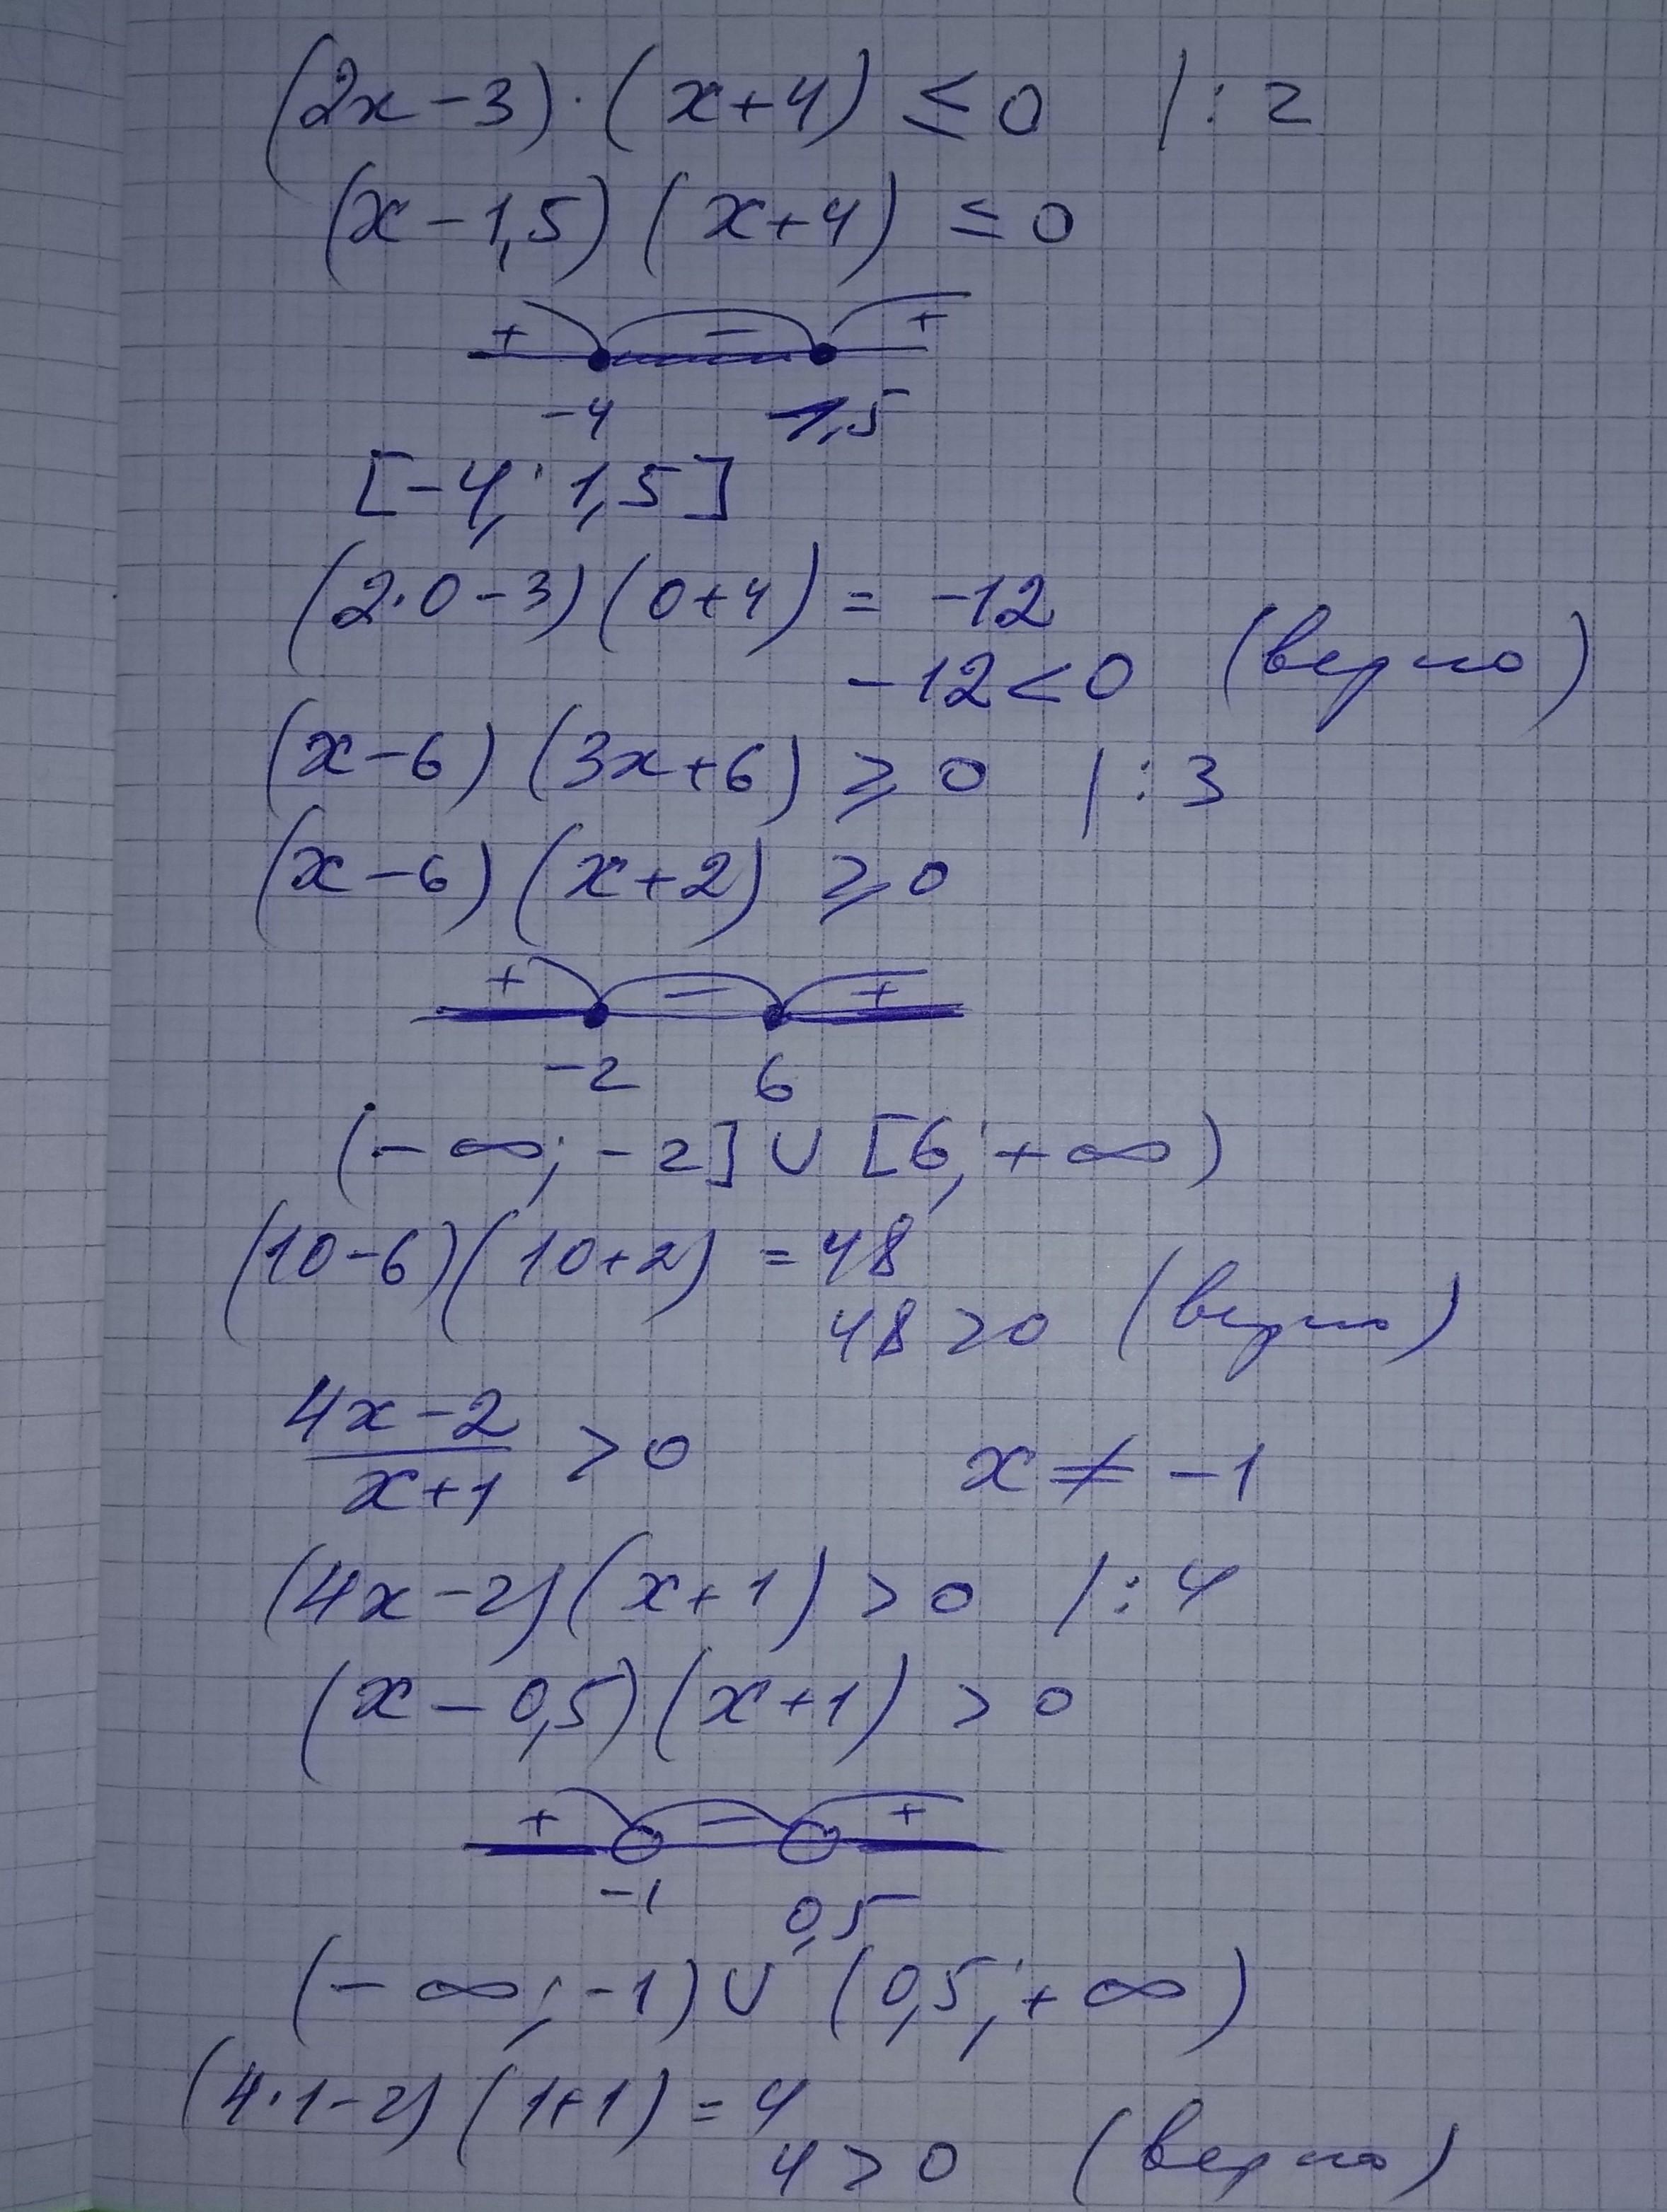 (2x-3)·(x+4) ≤ 0 /:2
(x-1,5)(x+4) ≤ 0
+ - +
-4 1,5
[-4; 1,5]
(2·0-3)(0+4) = -12
-12<0 (верно)
(x-6)(3x+6) ⩾ 0 /:3
(x-6)(x+2) ⩾ 0
+ - +
-2 6
(-∞; -2]∪[6; +∞)
(10-6)(10+2) = 48
48>0 (верно)
4x-2
x+1
>0 x≠-1
(4x-2)(x+1)>0 /:4
(x-0,5)(x+1)>0
+ - +
-1 0,5
(-∞; -1)∪(0,5; +∞)
(4·1-2)(1+1)=4
4>0 (верно)